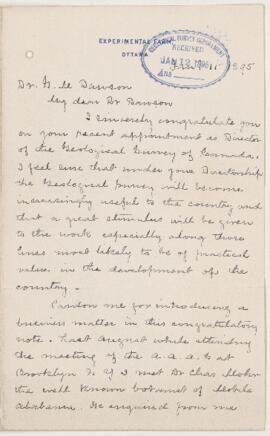 EXPERIMENTAL FARM
OTTAWA
GEOLOGICAL SURVEY DEPARTMENT
RECEIVED
JAN 12 1895
Ans
Jan 11 1895
Dr. G. M. Dawson
My dear Dr Dawson
I sincerely congratulate you
on your recent appointment as Director
of the Geological Survey of Canada.
I feel sure that under your Directorship
the Geological Survey will become
increasingly useful to the country and
that a great stimulus will be given
to the work especially along those
lines most likely to be of practical
value in the development of the
country.
Pardon me for introducing a
business matter in this congratulatory
note. Last August while attending
the meeting of the A.A.A.S. at
Brooklyn N.Y. I met Dr Chas Mohr
the well known botanist of Mobile
Alabama. He enquired from me